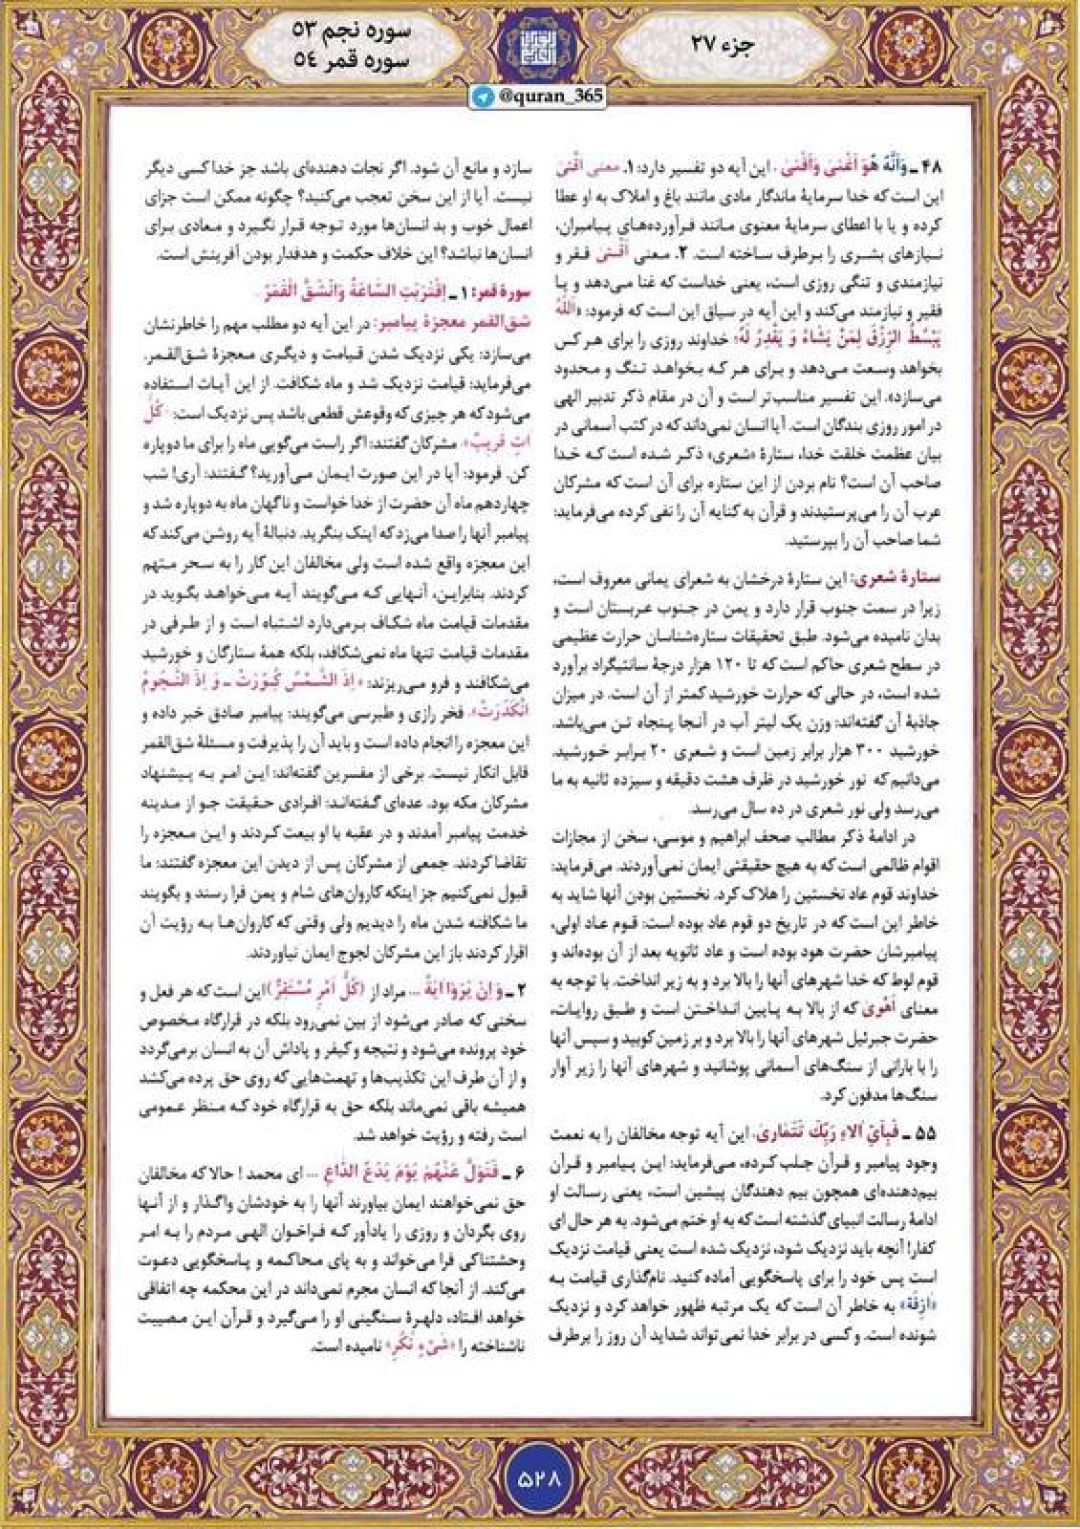 جزء ۲۷
سوره نجم ۵۳
سوره قمر ۵٤
@quran_365
۴۸ ـ وَاَنَّهُ هُوَ اَغْنیٰ وَاَقْنیٰ . این آیه دو تفسیر دارد: ۱. معنی اقْنیٰ
این است که خدا سرمایهٔ ماندگار مادی مانند باغ و املاک به او عطا
کرده و یا با اعطای سرمایهٔ معنوی مانند فرآورده‌های پیامبران،
نیازهای بشری را برطرف ساخته است. ۲. معنی اَقْنیٰ فقر و
نیازمندی و تنگی روزی است، یعنی خداست که غنا می‌دهد و یا
فقیر و نیازمند می‌کند و این آیه در سیاق این است که فرمود: «اَللّٰهُ
یَبْسُطُ الرِّزْقَ لِمَنْ یَشَاءُ وَ یَقْدِرُ لَهُ» خداوند روزی را برای هر کس
بخواهد وسعت می‌دهد و برای هر که بخواهد تنگ و محدود
می‌سازد». این تفسیر مناسب‌تر است و آن در مقام ذکر تدبیر الهی
در امور روزی بندگان است. آیا انسان نمی‌داند که در کتب آسمانی در
بیان عظمت خلقت خدا، ستارهٔ «شعری» ذکر شده است که خدا
صاحب آن است؟ نام بردن از این ستاره برای آن است که مشرکان
عرب آن را می‌پرستیدند و قرآن به کنایه آن را نفی کرده می‌فرماید:
شما صاحب آن را بپرستید.
ستارهٔ شعری: این ستارهٔ درخشان به شعرای یمانی معروف است،
زیرا در سمت جنوب قرار دارد و یمن در جنوب عربستان است و
بدان نامیده می‌شود. طبق تحقیقات ستاره‌شناسان حرارت عظیمی
در سطح شعری حاکم است که تا ۱۲۰ هزار درجهٔ سانتیگراد برآورد
شده است، در حالی که حرارت خورشید کمتر از آن است. در میزان
جاذبهٔ آن گفته‌اند: وزن یک لیتر آب در آنجا پنجاه تن می‌باشد.
خورشید ۳۰۰ هزار برابر زمین است و شعری ۲۰ برابر خورشید.
می‌دانیم که نور خورشید در ظرف هشت دقیقه و سیزده ثانیه به ما
می‌رسد ولی نور شعری در ده سال می‌رسد.
در ادامهٔ ذکر مطالب صحف ابراهیم و موسی، سخن از مجازات
اقوام ظالمی است که به هیچ حقیقتی ایمان نمی‌آوردند. می‌فرماید:
خداوند قوم عاد نخستین را هلاک کرد. نخستین بودن آنها شاید به
خاطر این است که در تاریخ دو قوم عاد بوده است: قوم عاد اولی،
پیامبرشان حضرت هود بوده است و عاد ثانویه بعد از آن بوده‌اند و
قوم لوط که خدا شهرهای آنها را بالا برد و به زیر انداخت. با توجه به
معنای اَهْویٰ که از بالا به پایین انداختن است و طبق روایات،
حضرت جبرئیل شهرهای آنها را بالا برد و بر زمین کوبید و سپس آنها
را با بارانی از سنگ‌های آسمانی پوشانید و شهرهای آنها را زیر آوار
سنگ‌ها مدفون کرد.
۵۵ ـ فَبِاَیِّ اٰلاءِ رَبِّکَ تَتَمٰاریٰ. این آیه توجه مخالفان را به نعمت
وجود پیامبر و قرآن جلب کرده، می‌فرماید: این پیامبر و قرآن
بیم‌دهنده‌ای همچون بیم دهندگان پیشین است، یعنی رسالت او
ادامهٔ رسالت انبیای گذشته است که به او ختم می‌شود. به هر حال ای
کفار! آنچه باید نزدیک شود، نزدیک شده است یعنی قیامت نزدیک
است پس خود را برای پاسخگویی آماده کنید. نام‌گذاری قیامت به
«اٰزِفَة» به خاطر آن است که یک مرتبه ظهور خواهد کرد و نزدیک
شونده است. و کسی در برابر خدا نمی‌تواند شداید آن روز را برطرف
سازد و مانع آن شود. اگر نجات دهنده‌ای باشد جز خدا کسی دیگر
نیست. آیا از این سخن تعجب می‌کنید؟ چگونه ممکن است جزای
اعمال خوب و بد انسان‌ها مورد توجه قرار نگیرد و معادی برای
انسان‌ها نباشد؟ این خلاف حکمت و هدفدار بودن آفرینش است.
سورهٔ قمر: ۱ ـ اِقْتَرَبَتِ السَّاعَةُ وَانْشَقَّ الْقَمَرُ .
شق‌القمر معجزهٔ پیامبر: در این آیه دو مطلب مهم را خاطرنشان
می‌سازد: یکی نزدیک شدن قیامت و دیگری معجزهٔ شق‌القمر.
می‌فرماید: قیامت نزدیک شد و ماه شکافت. از این آیات استفاده
می‌شود که هر چیزی که وقوعش قطعی باشد پس نزدیک است: «کُلُّ
اٰتٍ قَرِیبٌ» مشرکان گفتند: اگر راست می‌گویی ماه را برای ما دوپاره
کن. فرمود: آیا در این صورت ایمان می‌آورید؟ گفتند: آری! شب
چهاردهم ماه آن حضرت از خدا خواست و ناگهان ماه به دوپاره شد و
پیامبر آنها را صدا می‌زد که اینک بنگرید. دنبالهٔ آیه روشن می‌کند که
این معجزه واقع شده است ولی مخالفان این کار را به سحر متهم
کردند. بنابراین، آنهایی که می‌گویند آیه می‌خواهد بگوید در
مقدمات قیامت ماه شکاف برمی‌دارد اشتباه است و از طرفی در
مقدمات قیامت تنها ماه نمی‌شکافد، بلکه همهٔ ستارگان و خورشید
می‌شکافند و فرو می‌ریزند: «اِذَ الشَّمْسُ کُوِّرَتْ ـ وَ اِذَ النُّجُومُ
انْکَدَرَتْ». فخر رازی و طبرسی می‌گویند: پیامبر صادق خبر داده و
این معجزه را انجام داده است و باید آن را پذیرفت و مسئلهٔ شق‌القمر
قابل انکار نیست. برخی از مفسرین گفته‌اند: این امر به پیشنهاد
مشرکان مکه بود. عده‌ای گفته‌اند: افرادی حقیقت جو از مدینه
خدمت پیامبر آمدند و در عقبه با او بیعت کردند و این معجزه را
تقاضا کردند. جمعی از مشرکان پس از دیدن این معجزه گفتند: ما
قبول نمی‌کنیم جز اینکه کاروان‌های شام و یمن فرا رسند و بگویند
ما شکافته شدن ماه را دیدیم ولی وقتی که کاروان‌ها به رؤیت آن
اقرار کردند باز این مشرکان لجوج ایمان نیاوردند.
۲ ـ وَ اِنْ یَرَوْا اٰیَةً ... مراد از (کُلُّ اَمْرٍ مُسْتَقِرٌّ) این است که هر فعل و
سخنی که صادر می‌شود از بین نمی‌رود بلکه در قرارگاه مخصوص
خود پرونده می‌شود و نتیجه و کیفر و پاداش آن به انسان برمی‌گردد
و از آن طرف این تکذیب‌ها و تهمت‌هایی که روی حق پرده می‌کشد
همیشه باقی نمی‌ماند بلکه حق به قرارگاه خود که منظر عمومی
است رفته و رؤیت خواهد شد.
۶ ـ فَتَوَلَّ عَنْهُمْ یَوْمَ یَدْعُ الدّٰاعِ ... ای محمد ! حالا که مخالفان
حق نمی‌خواهند ایمان بیاورند آنها را به خودشان واگذار و از آنها
روی بگردان و روزی را یادآور که فراخوان الهی مردم را به امر
وحشتناکی فرا می‌خواند و به پای محاکمه و پاسخگویی دعوت
می‌کند. از آنجا که انسان مجرم نمی‌داند در این محکمه چه اتفاقی
خواهد افتاد، دلهرهٔ سنگینی او را می‌گیرد و قرآن این مصیبت
ناشناخته را «شَیْءٍ نُکُرٍ» نامیده است.
۵۲۸